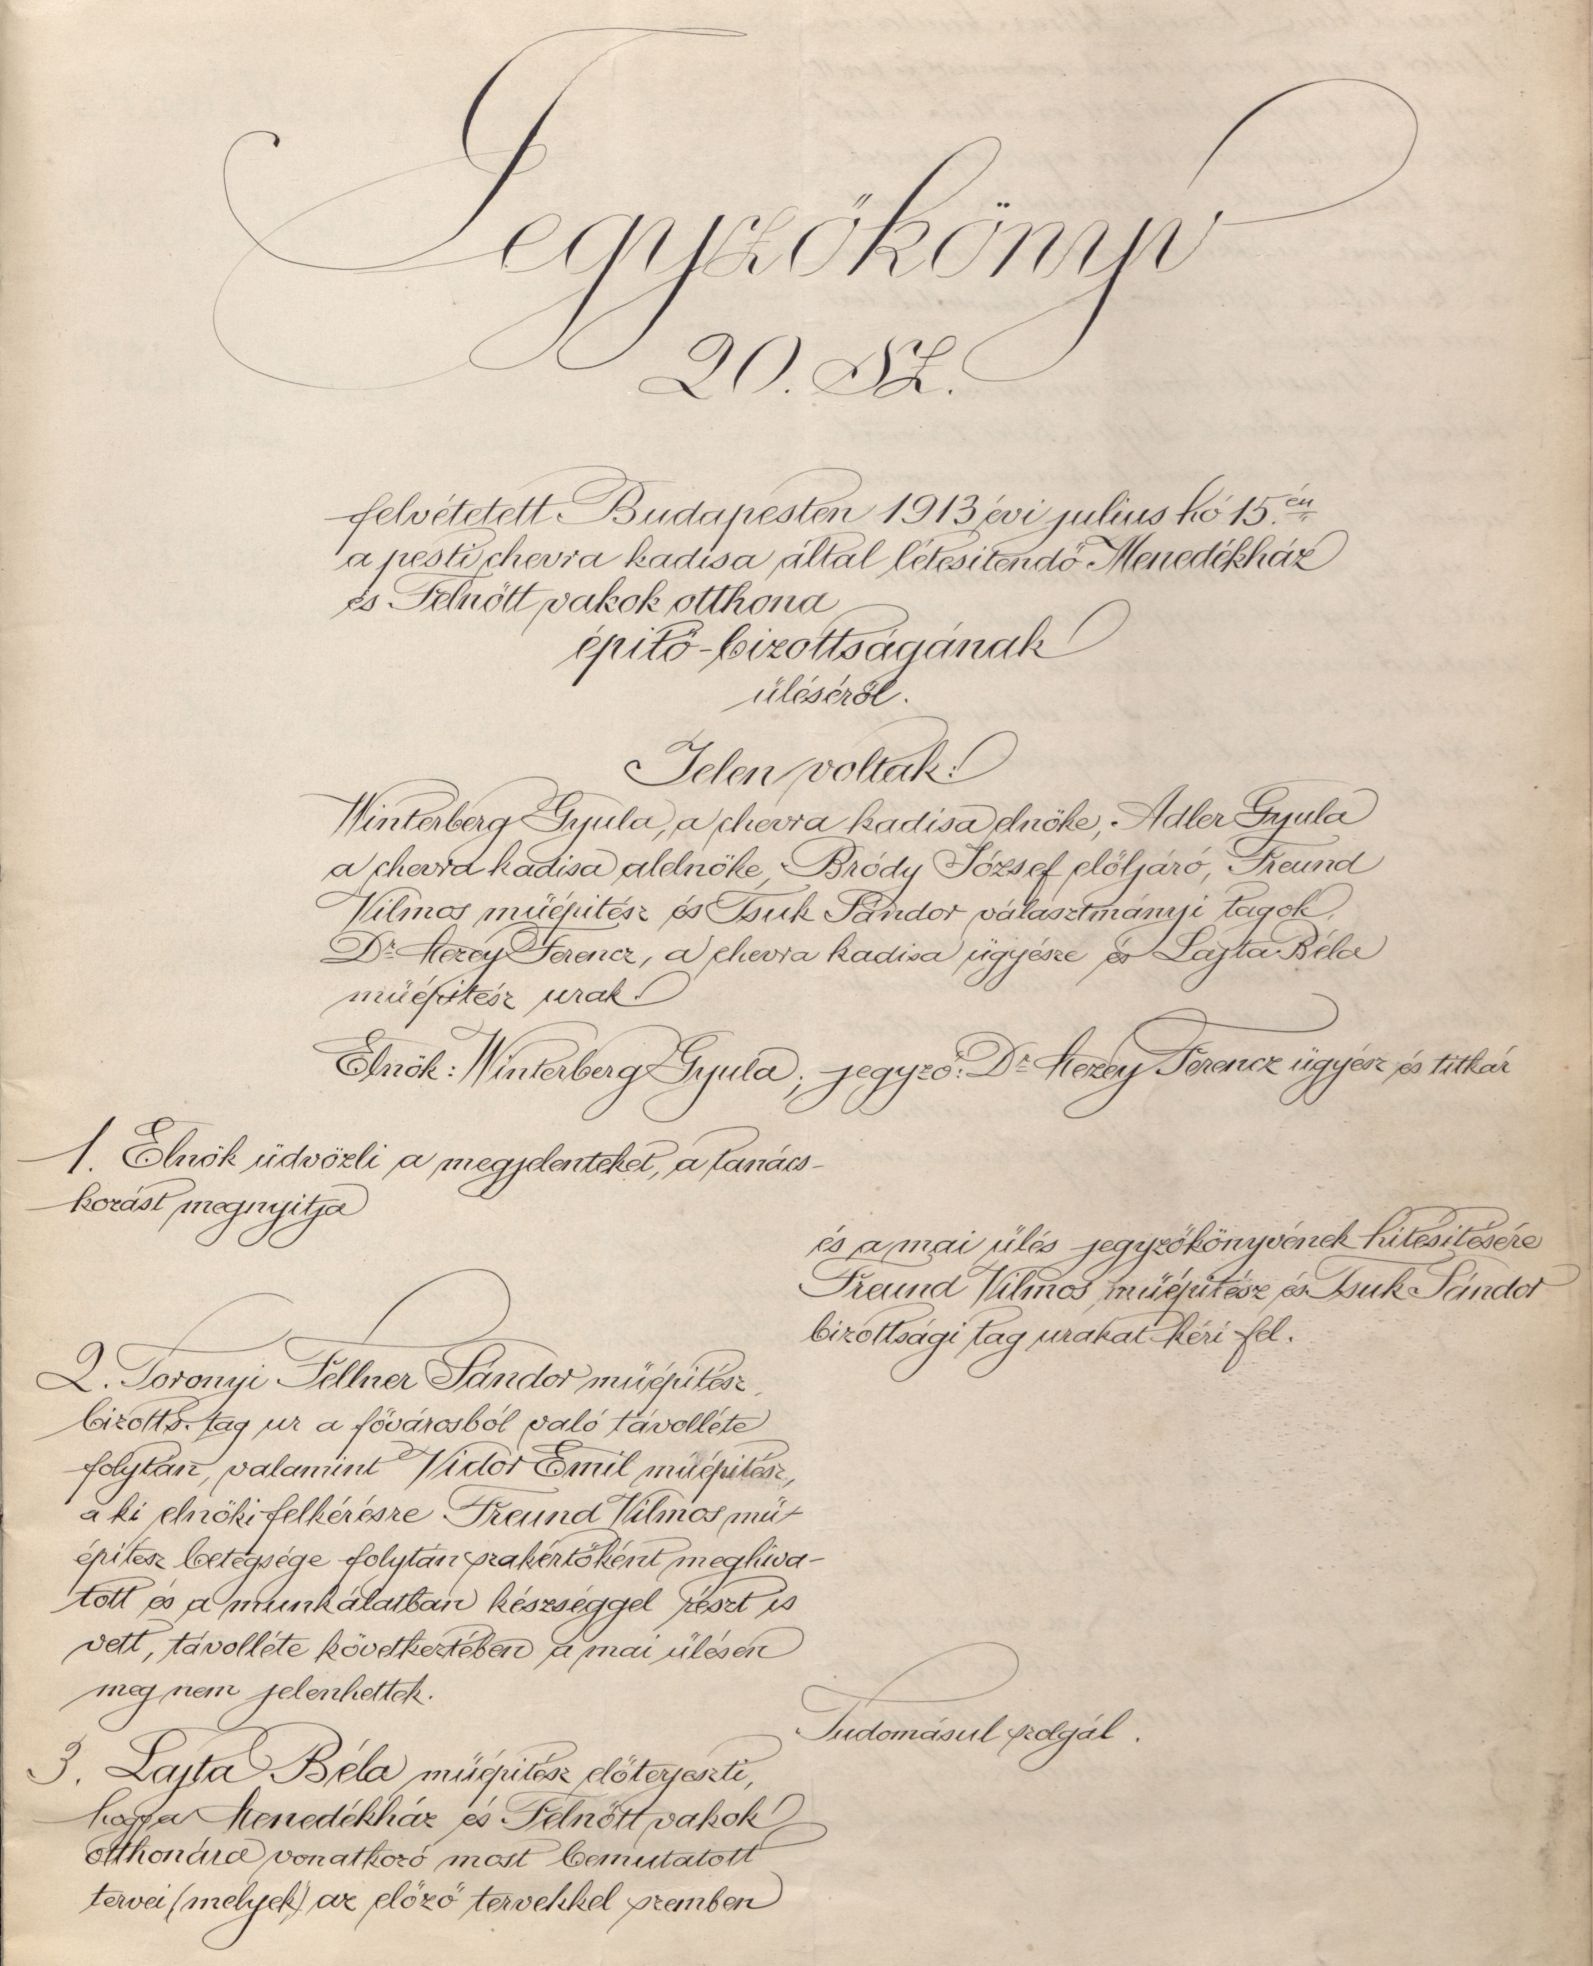 Jegyzőkönyv
20. SZ.
felvétetett Budapesten 1913 évi julius hó 15.én
a pesti chevra kadisa által létesitendő Menedékház
és Felnőtt vakok otthona
épitő-bizottságának
üléséről.
Jelen voltak:
Winterberg Gyula, a chevra kadisa elnöke, Adler Gyula
a chevra kadisa alelnöke, Bródy József előljáró, Freund
Vilmos műépitész és Tsuk Sándor választmányi tagok,
Dr. Mezey Ferencz, a chevra kadisa ügyésze és Lajta Béla
műépitész urak.
Elnök: Winterberg Gyula; jegyző: Dr. Mezey Ferencz ügyész és titkár
1. Elnök üdvözli a megjelenteket, a tanács-
kozást megnyitja
és a mai ülés jegyzőkönyvének hitesitésére
Freund Vilmos műépitész és Tsuk Sándor
bizottsági tag urakat kéri fel.
2. Toronyi Fellner Sándor műépitész,
bizotts. tag ur a fővárosból való távolléte
folytán, valamint Vidor Emil műépitész,
a ki elnöki felkérésre Freund Vilmos mű-
épitész betegsége folytán szakértőként meghiva-
tott és a munkálatban készséggel részt is
vett, távolléte következtében a mai ülésen
meg nem jelenhettek.
Tudomásul szolgál.
3. Lajta Béla műépitész előterjeszti,
hogy a Menedékház és Felnőtt vakok
otthonára vonatkozó most bemutatott
tervei (melyek) az előző tervekkel szemben